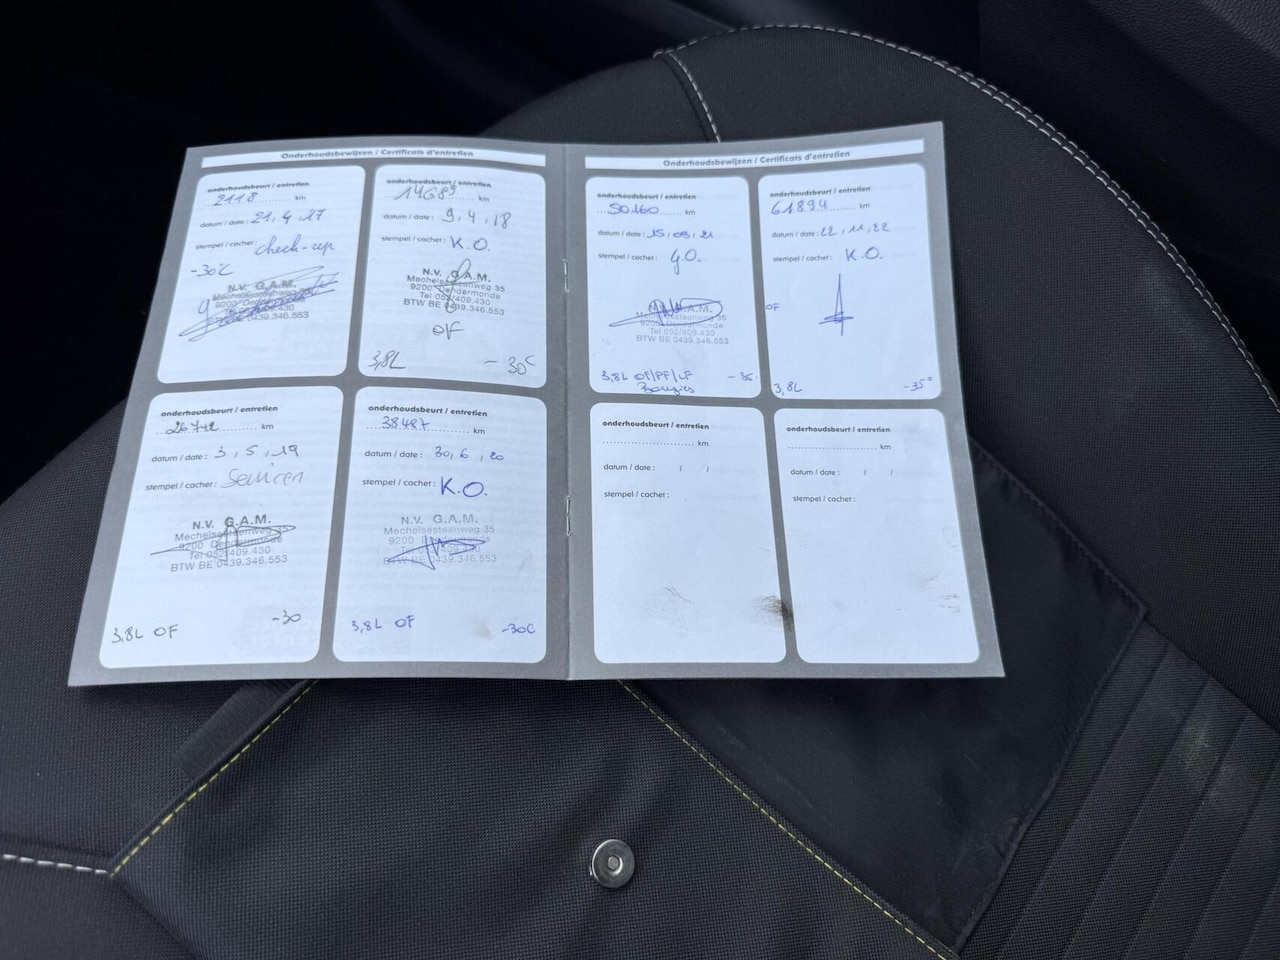 Onderhoudsbewijzen / Certificats d'entretien
onderhoudsbeurt / entretien
2118 km
datum / date : 21, 4, 17
stempel / cachet : check-up
-30°C
N.V. G.A.M.
Mechelsesteenweg 35
9200 Dendermonde
Tel 052/409.430
BTW BE 0439.346.553
onderhoudsbeurt / entretien
14689 km
datum / date : 9, 4, 18
stempel / cachet : K.O.
N.V. G.A.M.
Mechelsesteenweg 35
9200 Dendermonde
Tel 052/409.430
BTW BE 0439.346.553
OF
3,8L -30C
onderhoudsbeurt / entretien
26742 km
datum / date : 3, 5, 19
stempel / cachet :
N.V. G.A.M.
Mechelsesteenweg 35
9200 Dendermonde
Tel 052/409.430
BTW BE 0439.346.553
3,8L OF -30
onderhoudsbeurt / entretien
38487 km
datum / date : 30, 6, 20
stempel / cachet : K.O.
N.V. G.A.M.
Mechelsesteenweg 35
9200 Dendermonde
Tel 052/409.430
BTW BE 0439.346.553
3,8L OF -30C
Onderhoudsbewijzen / Certificats d'entretien
onderhoudsbeurt / entretien
50160 km
datum / date : 15, 09, 21
stempel / cachet : G.O.
N.V. G.A.M.
Mechelsesteenweg 35
9200 Dendermonde
Tel 052/409.430
BTW BE 0439.346.553
3,8L OF/PF/LF
Bougies
onderhoudsbeurt / entretien
61894 km
datum / date : 22, 11, 22
stempel / cachet : K.O.
OF
3,8L -35°
onderhoudsbeurt / entretien
km
datum / date : / /
stempel / cachet :
onderhoudsbeurt / entretien
km
datum / date : / /
stempel / cachet :